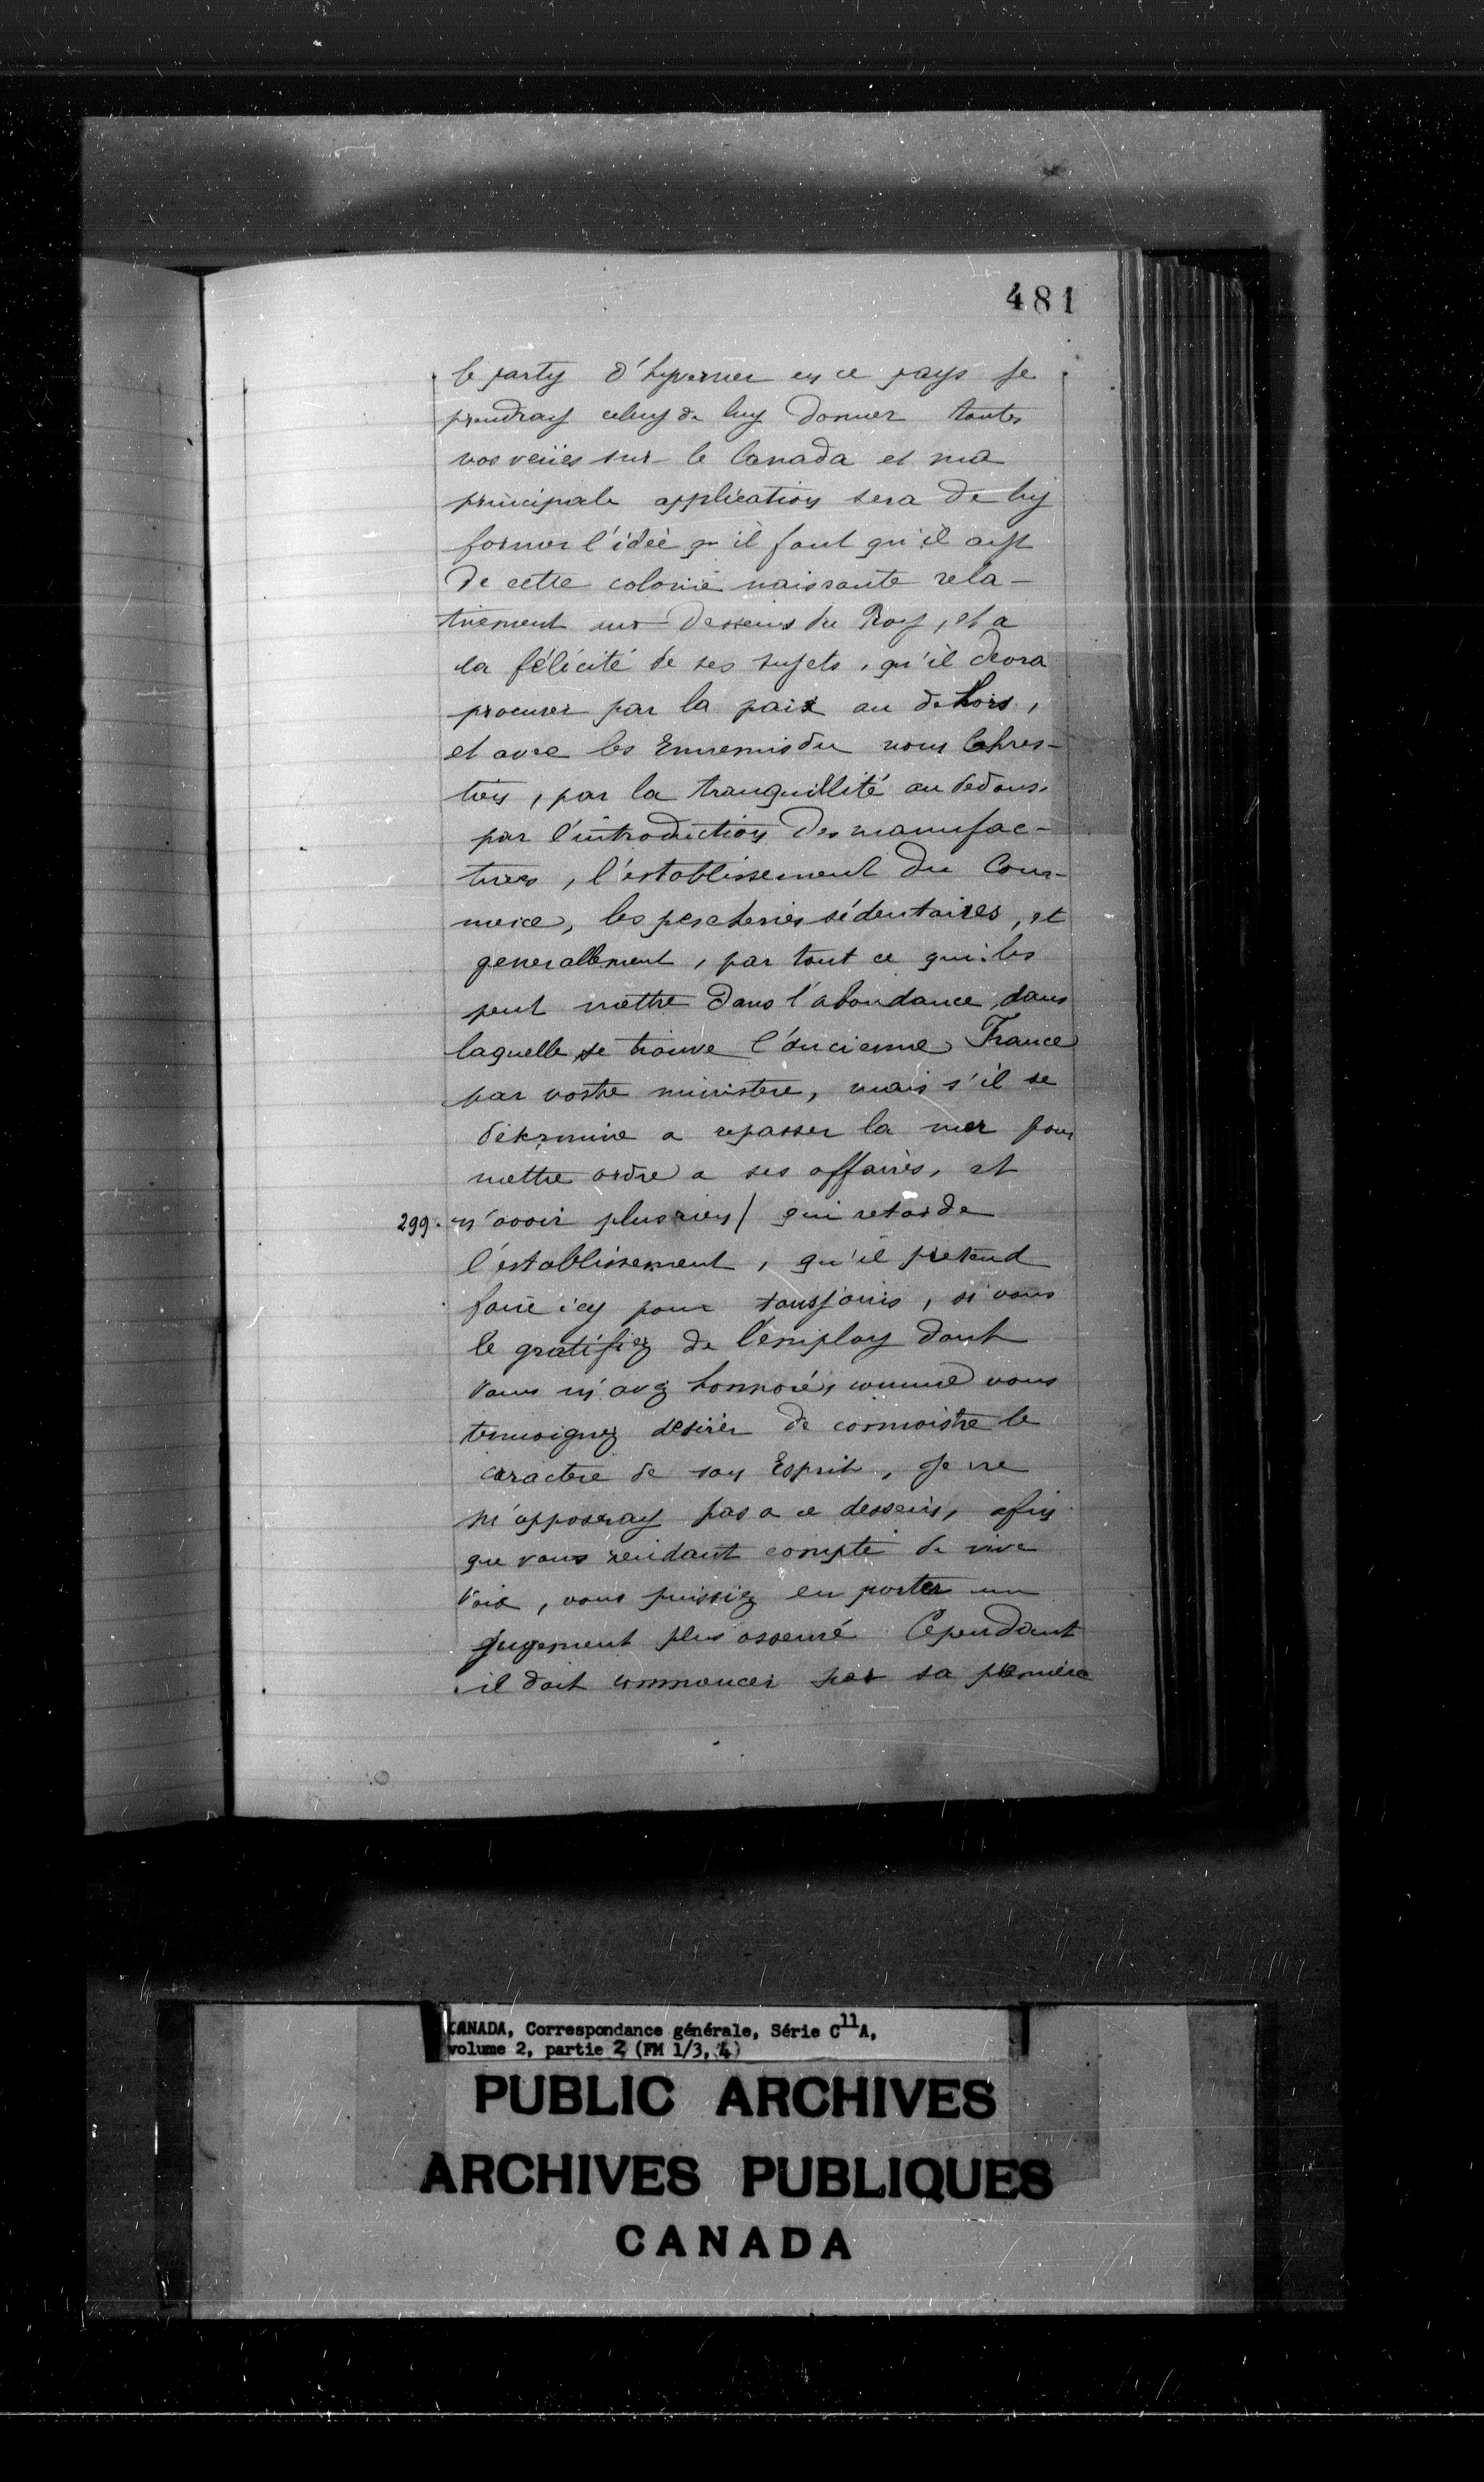 481
le party d'hyverner en ce pays je
prendray celuy de luy donner toutes
vos veües sur le Canada et ma
principale application sera de luy
former l'idée qu'il faut qu'il ayt
de cette colonie naissante rela-
tivement aux desseins du Roy, et a
la félicité de ses sujets, qu'il devra
procurer par la paix au dehors,
et avec les Ennemis du nom Chres-
tien, par la tranquillité au dedans,
par l'introduction des manufac-
tures, l'establissement du Com-
merce, les pescheries sédentaires, et
generallement, par tout ce qui les
peut mettre dans l'abondance, dans
laquelle se trouve l'ancienne France
par vostre ministere, mais s'il se
determine a repasser la mer pour
mettre ordre a ses affaires, et
299. n'avoir plus rien/ qui retarde
l'establissement, qu'il pretend
faire icy pour tousjours, si vous
le gratifiez de l'employ dont
vous m'avez honnoré, comme vous
temoignez desirer de connoistre le
caractere de son Esprit, Je ne
m'opposeray pas a ce dessein, afin
que vous rendant compte de vive
voix, vous puissiez en porter un
jugement plus asseuré Cependant
il doit commencer par sa premiere
CANADA, Correspondance générale, Série C11A,
volume 2, partie 2 (FM 1/3, 4)
PUBLIC ARCHIVES
ARCHIVES PUBLIQUES
CANADA